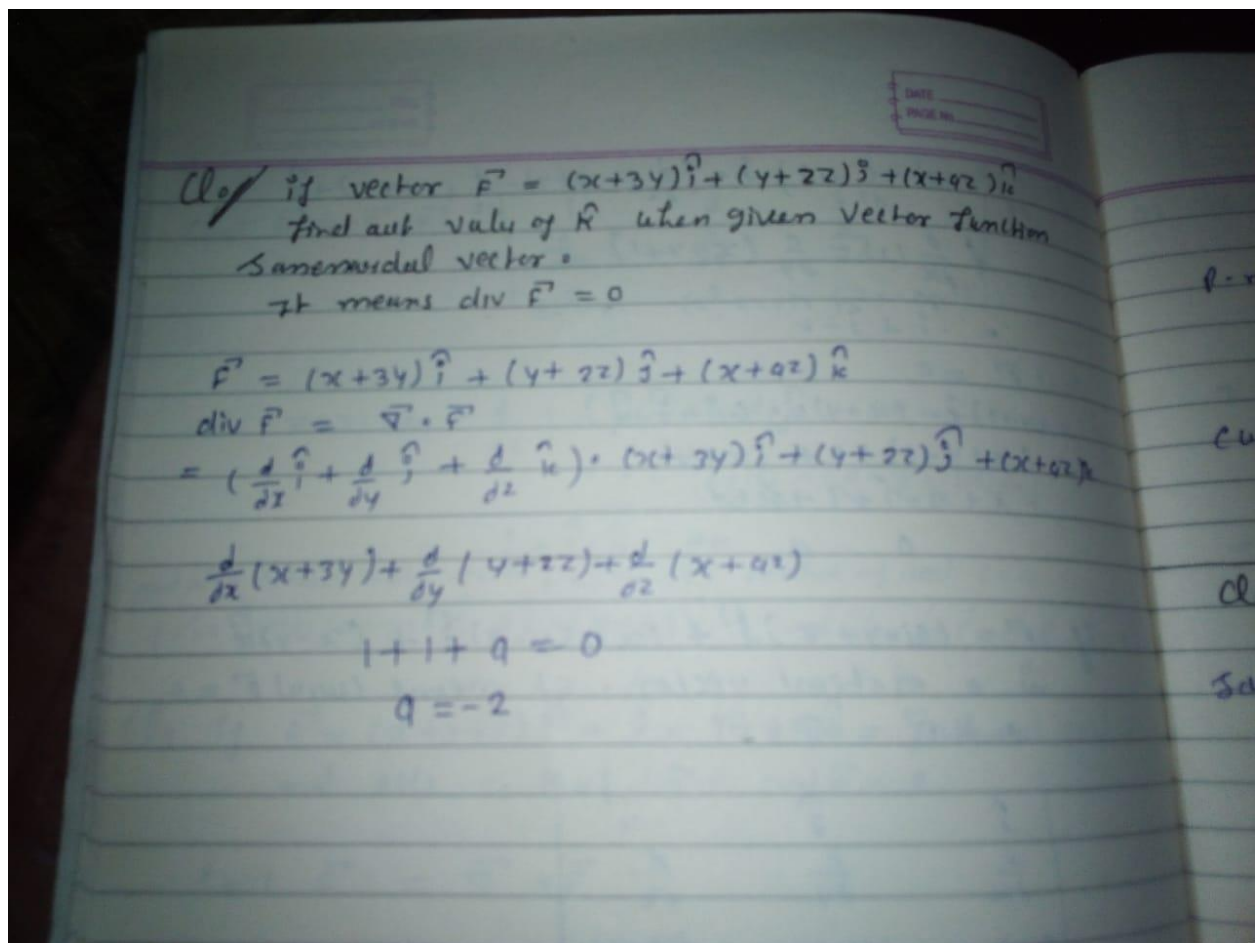 DATE
PAGE No.
Q. if vector F⃗ = (x+3y)î + (y+2z)ĵ + (x+az)k̂
find aut value of k̂ when given vector function
vector.
It means div F⃗ = 0
F⃗ = (x+3y)î + (y+2z)ĵ + (x+az)k̂
div F⃗ = ∇⃗ · F⃗
= (d/dx î + d/dy ĵ + d/dz k̂) · (x+3y)î + (y+2z)ĵ + (x+az)k
d/dx (x+3y) + d/dy (y+2z) + d/dz (x+az)
1+1+a = 0
a = -2
cu
Q